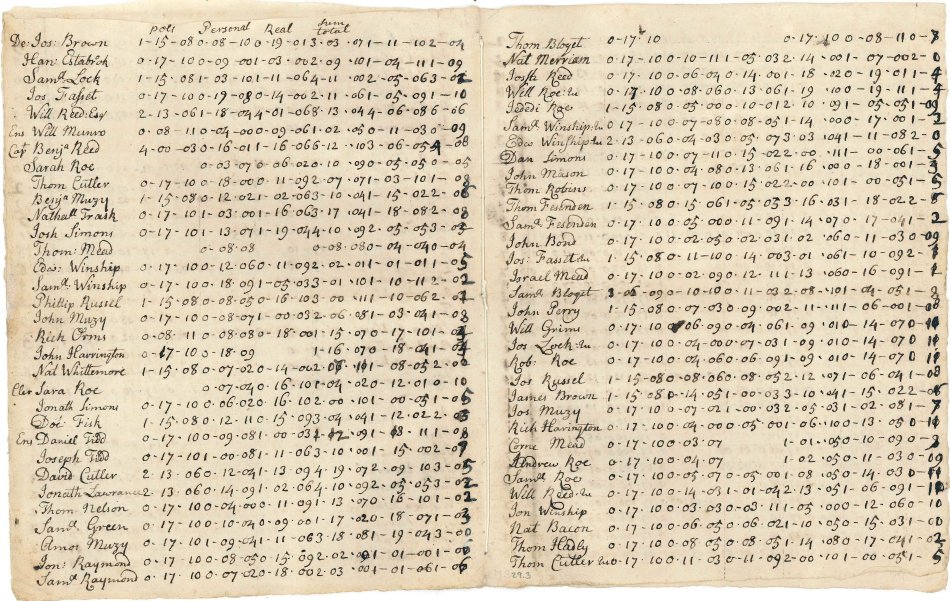 poll Personal Real Sum total
De: Jos: Brown 1-15-08 0-08-10 0-19-01 3-03-07 1-11-10 2-04
Han: Estabrok 0-17-10 0-09-00 1-03-00 2-09-10 1-04-11 1-09
Samll Lock 1-15-08 1-03-10 1-11-06 4-11-00 2-05-06 3-02
Jos: Fasset 0-17-10 0-19-08 0-14-00 2-11-06 1-05-09 1-10
Will Reed Esq 2-13-06 1-18-04 4-01-06 8-13-04 4-06-08 6-06
Ens Will Munro 0-08-11 0-04-00 0-09-06 1-02-05 0-11-03 0-09
Capt Benja Reed 4-00-03 0-16-01 1-16-06 6-12-10 3-06-05 4-08
Sarah Roe 0-03-07 0-06-02 0-10-09 0-05-05 0-05
Thom Cutler 0-17-10 0-18-00 0-11-09 2-07-07 1-03-10 1-08
Benja Muzy 1-15-08 0-12-02 1-02-06 3-10-04 1-15-02 2-08
Nathall Trask 0-17-10 1-03-00 1-16-06 3-17-04 1-18-08 2-08
Josh Simons 0-17-10 1-13-07 1-19-04 4-10-09 2-05-05 3-05
Thom: Mead 0-08-08 0-08-08 0-04-04 0-04
Edw: Winship 0-17-10 0-12-06 0-11-09 2-02-01 1-01-01 1-05
Samll Winship 0-17-10 0-18-09 1-05-03 3-01-10 1-10-11 2-02
Phillip Russel 1-15-08 0-08-05 0-16-10 3-00-11 1-10-06 2-01
John Muzy 0-17-10 0-08-07 1-00-03 2-06-08 1-03-04 1-08
Rich Orms 0-08-11 0-08-08 0-18-00 1-15-07 0-17-10 1-04
John Harrington 0-17-10 0-18-09 1-16-07 0-18-04 1-04
Nat Whittemore 1-15-08 0-07-02 0-14-00
Eler Sara Roe 0-07-04 0-16-10 1-04-02 0-12-01 0-10
Jonath Simons 0-17-10 0-06-02 0-16-10 2-00-10 1-00-05 1-05
Doc: Fisk 1-15-08 0-12-11 0-15-09 3-04-04 1-12-02 2-03
Ens Daniel Tidd 0-17-10 0-09-08 1-00-03
Joseph Tidd 0-17-10 1-00-08 1-11-06 3-10-00 1-15-00 2-07
David Cutler 2-13-06 0-12-04 1-13-09 4-19-07 2-09-10 3-05
Jonath Lawrance 2-13-06 0-14-09 1-02-06 4-10-09 2-05-05 3-02
Thom Nelson 0-17-10 0-04-00 0-11-09 1-13-07 0-16-10 1-02
Samll Green 0-17-10 0-10-04 0-09-00 1-17-02 0-18-07 1-03
Amos Muzy 0-17-10 1-09-04 1-11-06 3-18-08 1-19-04 3-00
Jon: Raymond 0-17-10 0-08-05 0-15-09
Samll Raymond 0-17-10 0-07-02 0-18-00 2-03-00 1-01-06 1-06
Thom Bloget 0-17-10 0-17-10 0-08-11 0-7
Nat Merriam 0-17-10 0-10-11 1-05-03 2-14-00 1-07-00 2-0
Josh Reed 0-17-10 0-06-04 0-14-00 1-18-02 0-19-01 1-4
Will Roe: Ju 0-17-10 0-08-06 0-13-06 1-19-10 0-19-11 1-4
Jededi Roe 1-15-08 0-05-00 0-10-01 2-10-09 1-05-05 1-09
Samll Winship: Ju 0-17-10 0-07-08 0-08-05 1-14-00 0-17-00 1-2
Edw Winship Ju 2-13-06 0-04-03 0-05-07 3-03-04 1-11-08 2-0
Dan Simons 0-17-10 0-07-11 0-15-02 2-00-11 1-00-06 1-5
John Mason 0-17-10 0-04-08 0-13-06 1-16-00 0-18-00 1-3
Thom Robins 0-17-10 0-07-10 0-15-02 2-00-10 1-00-05 1-5
Thom Fesenden 1-15-08 0-15-06 1-05-05 3-16-03 1-18-02 2-8
Samll Fesenden 0-17-10 0-05-00 0-11-09 1-14-07 0-17-04 1-2
John Bond 0-17-10 0-02-05 0-02-03 1-02-06 0-11-03 0-09
Jos: Fasset Ju 1-15-08 0-11-10 0-14-00 3-01-06 1-10-09 2-1
Israel Mead 0-17-10 0-02-09 0-12-11 1-13-06 0-16-09 1-1
Samll Bloget
John Perry 1-15-08 0-07-03 0-09-00 2-11-11 1-06-00 1-08
Will Grims
Jos Lock: Ju 0-17-10 0-04-00 0-07-03 1-09-01 0-14-07 0-11
Rob: Roe 0-17-10 0-04-06 0-06-09 1-09-01 0-14-07 0-11
Jos Russel 1-15-08 0-08-06 0-08-05 2-12-07 1-06-04 1-08
James Brown 1-15-08 0-14-05 1-00-03 3-10-04 1-15-02 2-08
Jos Muzy 0-17-10 0-07-02 1-00-03 2-05-03 1-02-08 1-7
Rich Harington 0-17-10 0-04-00 0-05-00 1-06-10 0-13-05 0-10
Corne Mead 0-17-10 0-03-07 1-01-05 0-10-09 0-9
Andrew Roe 0-17-10 0-04-07 1-02-05 0-11-03 0-09
Samll Roe 0-17-10 0-05-07 0-05-00 1-08-05 0-14-03 0-11
Will Reed: Ju 0-17-10 0-14-03 1-01-04 2-13-05 1-06-09 1-10
Jon Winship 0-17-10 0-03-03 0-03-11 1-05-00 0-12-06 0-10
Nat Bacon 0-17-10 0-06-05 0-06-02 1-10-05 0-15-03 1-0
Thom Hadly 0-17-10 0-08-05 0-08-05 1-14-08 0-17-04 1-2
Thom Cutler Ju 0-17-10 0-11-03 0-11-09 2-00-10 1-00-05 1-5
29.3